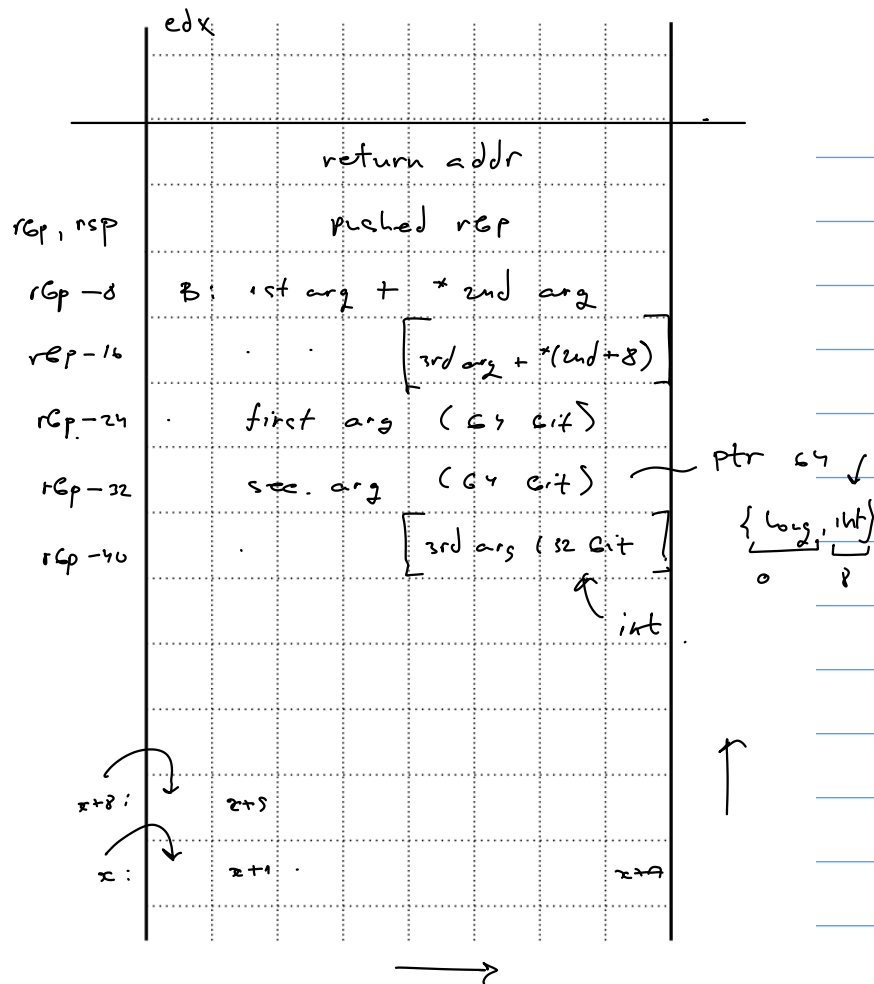 edx
return addr
rbp, rsp pushed rbp
rbp -8 B: 1st arg + * 2nd arg
rbp -16 [3rd arg + *(2nd+8)]
rbp -24 first arg (64 bit)
rbp -32 sec. arg (64 bit) ptr 64
{long, int}
rbp -40 [3rd arg (32 bit]
0 8
int
x+8:
x: x+1